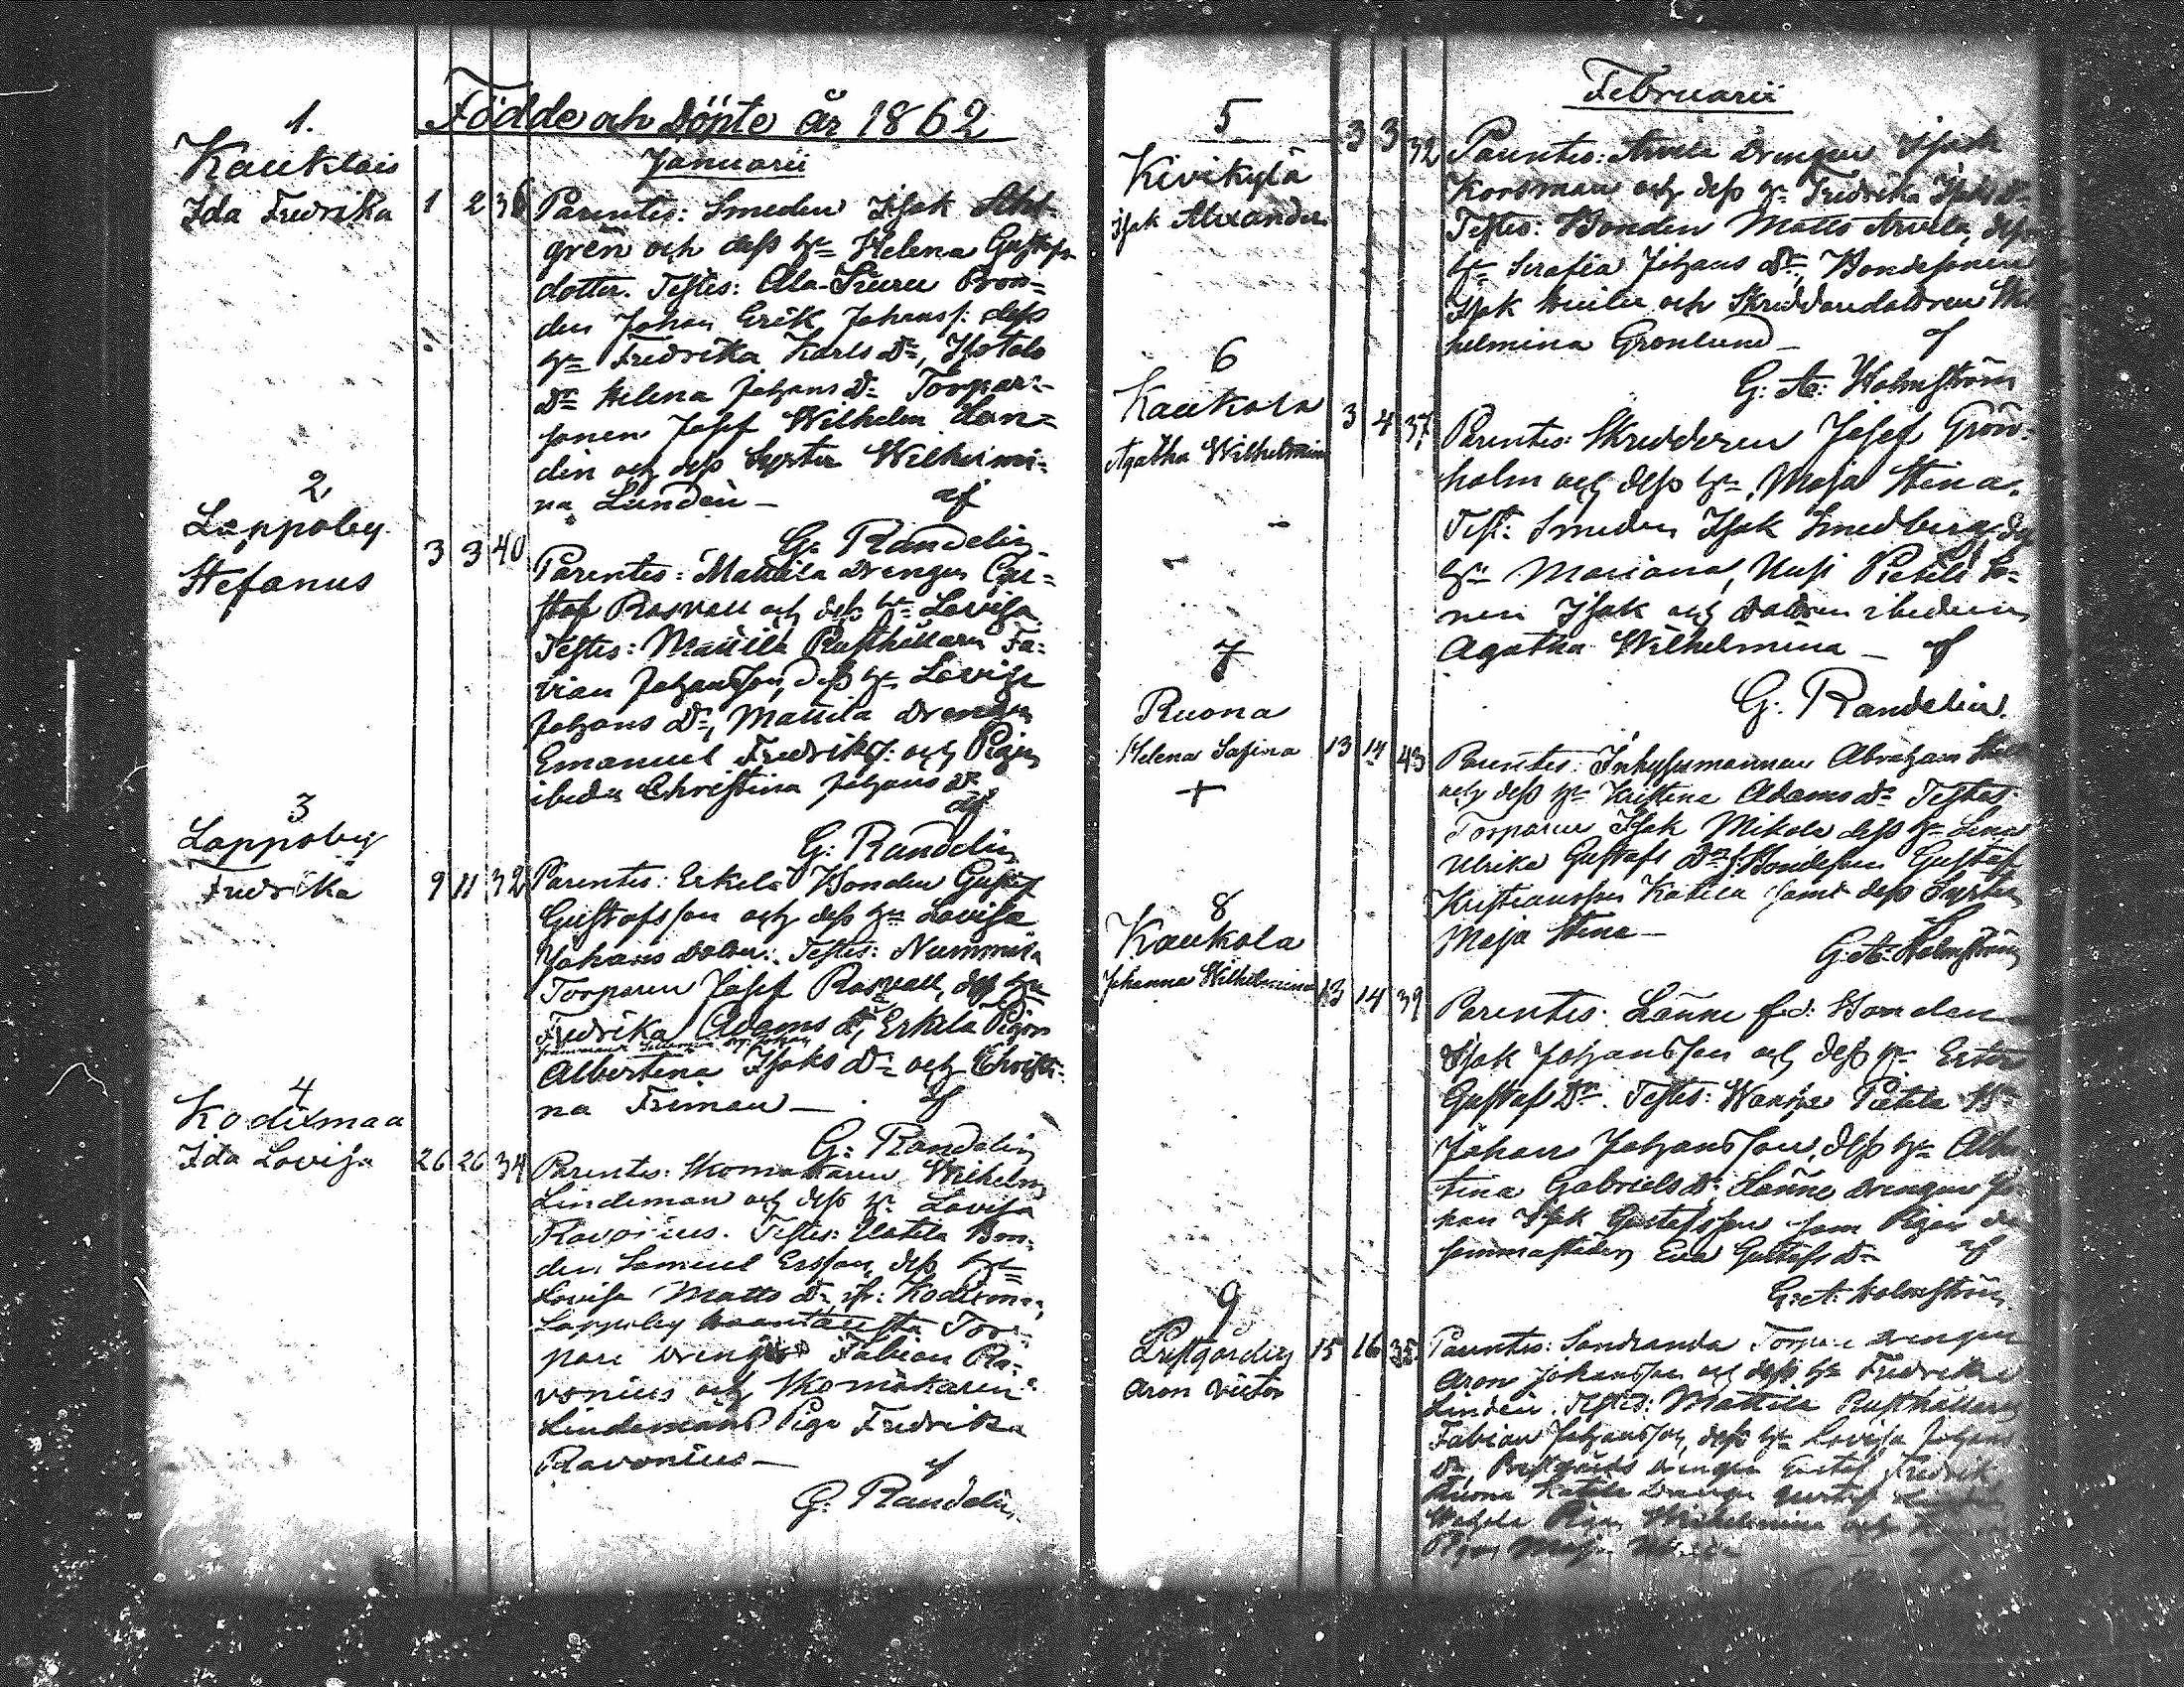 Födde och Döpte år 1862
Januarii
1.
Kauklais
Ida Fredrika 1 2 36
Parentes: Smeden Isak
gren och dess h:u Helena Gustafs
dotter. Testes: Ala-
den Johan Erik Johanss: dess
h:u Fredrika Karls Dr,
Dr Helena Johans Dr Torpar=
sonen Josef Wilhelm Lun=
din och dess Syster Wilhelmi=
na Lundin — af
G: Randelin
2
Lappoby
Stefanus 3 3 40
Parentes: Mattila Drengen Gu=
staf Rosvall och dess h:u Lovisa
Testes: Mattila Rusthållaren Fa=
bian Johansson, dess h:u Lovisa
Johans Dr, Mattila Drengen
Emanuel Fredriks: och Pigan
ibid:m Christina Johans Dr
af
G: Randelin
3
Lappoby
Fredrika 9 11 32
Parentes: Erkilä Bonden Gustaf
Gustafsson och dess h:u Lovisa
Johans dotter: Testes: Nummila
Torparen Josef Rosvall, dess h:u
Fredrika Adams Dr, Erkilä Pigan
Albertina Isaks Dr och Christi=
na Friman — af
G: Randelin
4
Kodixmaa
Ida Lovisa 26 26 34
Parentes: Skomakaren Wilhelm
Lindeman och dess h:u Lovisa
Ravonius. Testes: Uotila Bon=
den Samuel Ersson, dess h:u
Lovisa Matts Dr
Lappoby Tor=
pare Drengen Fabian Ra=
vonius och Skomakaren
Lindemans Piga Fredrika
Ravonius — af
G: Randelin
Februarii
5
Kivikylä
Isak Alexander 3 3 32
Parentes: Arvela Drengen Isak
Korsman och dess h:u Fredrika Isaks Dr
Testes: Bonden Matts Arvela, dess
h:u Serafia Johans Dr, Bondesonen
Isak och Skräddaredottren Wil
helmina Grönlund — af
G: A: Holmström
6
Kaukola
Agatha Wilhelmina 3 4 37
Parentes: Skreddaren Josef Grön=
holm och dess h:u Maja Stina.
Test: Smeden Isak Smedberg, dess
h:u Mariana, Uusi Pietilä So=
nen Isak och Dottren ibidem
Agatha Wilhelmina — af
G: Randelin.
7
Ruona
Helena Safina 13 14 43
+
Parentes: Inhysesmannen Abraham
och dess h:u Kristina Adams Dr Testes
Torparen Isak Mikola dess h:u Lena
Ulrika Gustafs Dr, Bondeson Gustaf
Kristiansson Katila samt dess Syster
Maja Stina —
G: A: Holmström
8
Kaukola
Johanna Wilhelmina 13 14 39
Parentes: Länne f.d. Bonden
Isak Johansson och dess h:u Ester
Gustaf Dr. Testes: Pietilä
Johan Johansson, dess h:u Alber
tina Gabriels Dr Länne Drengen Jo
han Isak Gustafsson som Pigan
sammastädes Eva Gustafs Dr af
G: A: Holmström
9
Prestgården
Aron Victor 15 16 35
Parentes: Sondranda Torpare drengen
Aron Johansson och dess h:u Fredrika
Linden. Testes: Mattila Rusthållaren
Fabian Johansson, dess h:u Lovisa Johans
Dr, Prestgårds drengen Gustaf Fredrik
Ruona Katila Drengen Gustaf
Pigan Wilhelmina och
Pigan Maja